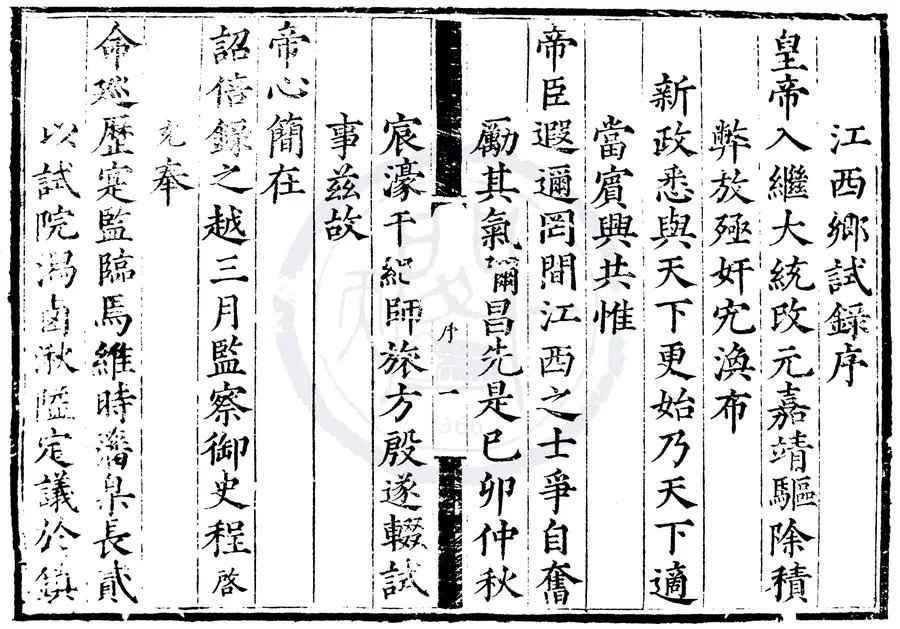 江西鄉試錄序
皇帝入繼大統改元嘉靖驅除積
弊放殛奸宄渙布
新政悉與天下更始乃天下適
當賓興共惟
帝臣遐邇罔間江西之士爭自奮
勵其氣彌昌先是己卯仲秋
序 一
宸濠干紀師旅方殷遂輟試
事茲故
帝心簡在
詔倍錄之越三月監察御史程啓
充奉
命廵歷寔監臨焉維時藩臬長貳
以試院潟鹵湫隘定議於鎮